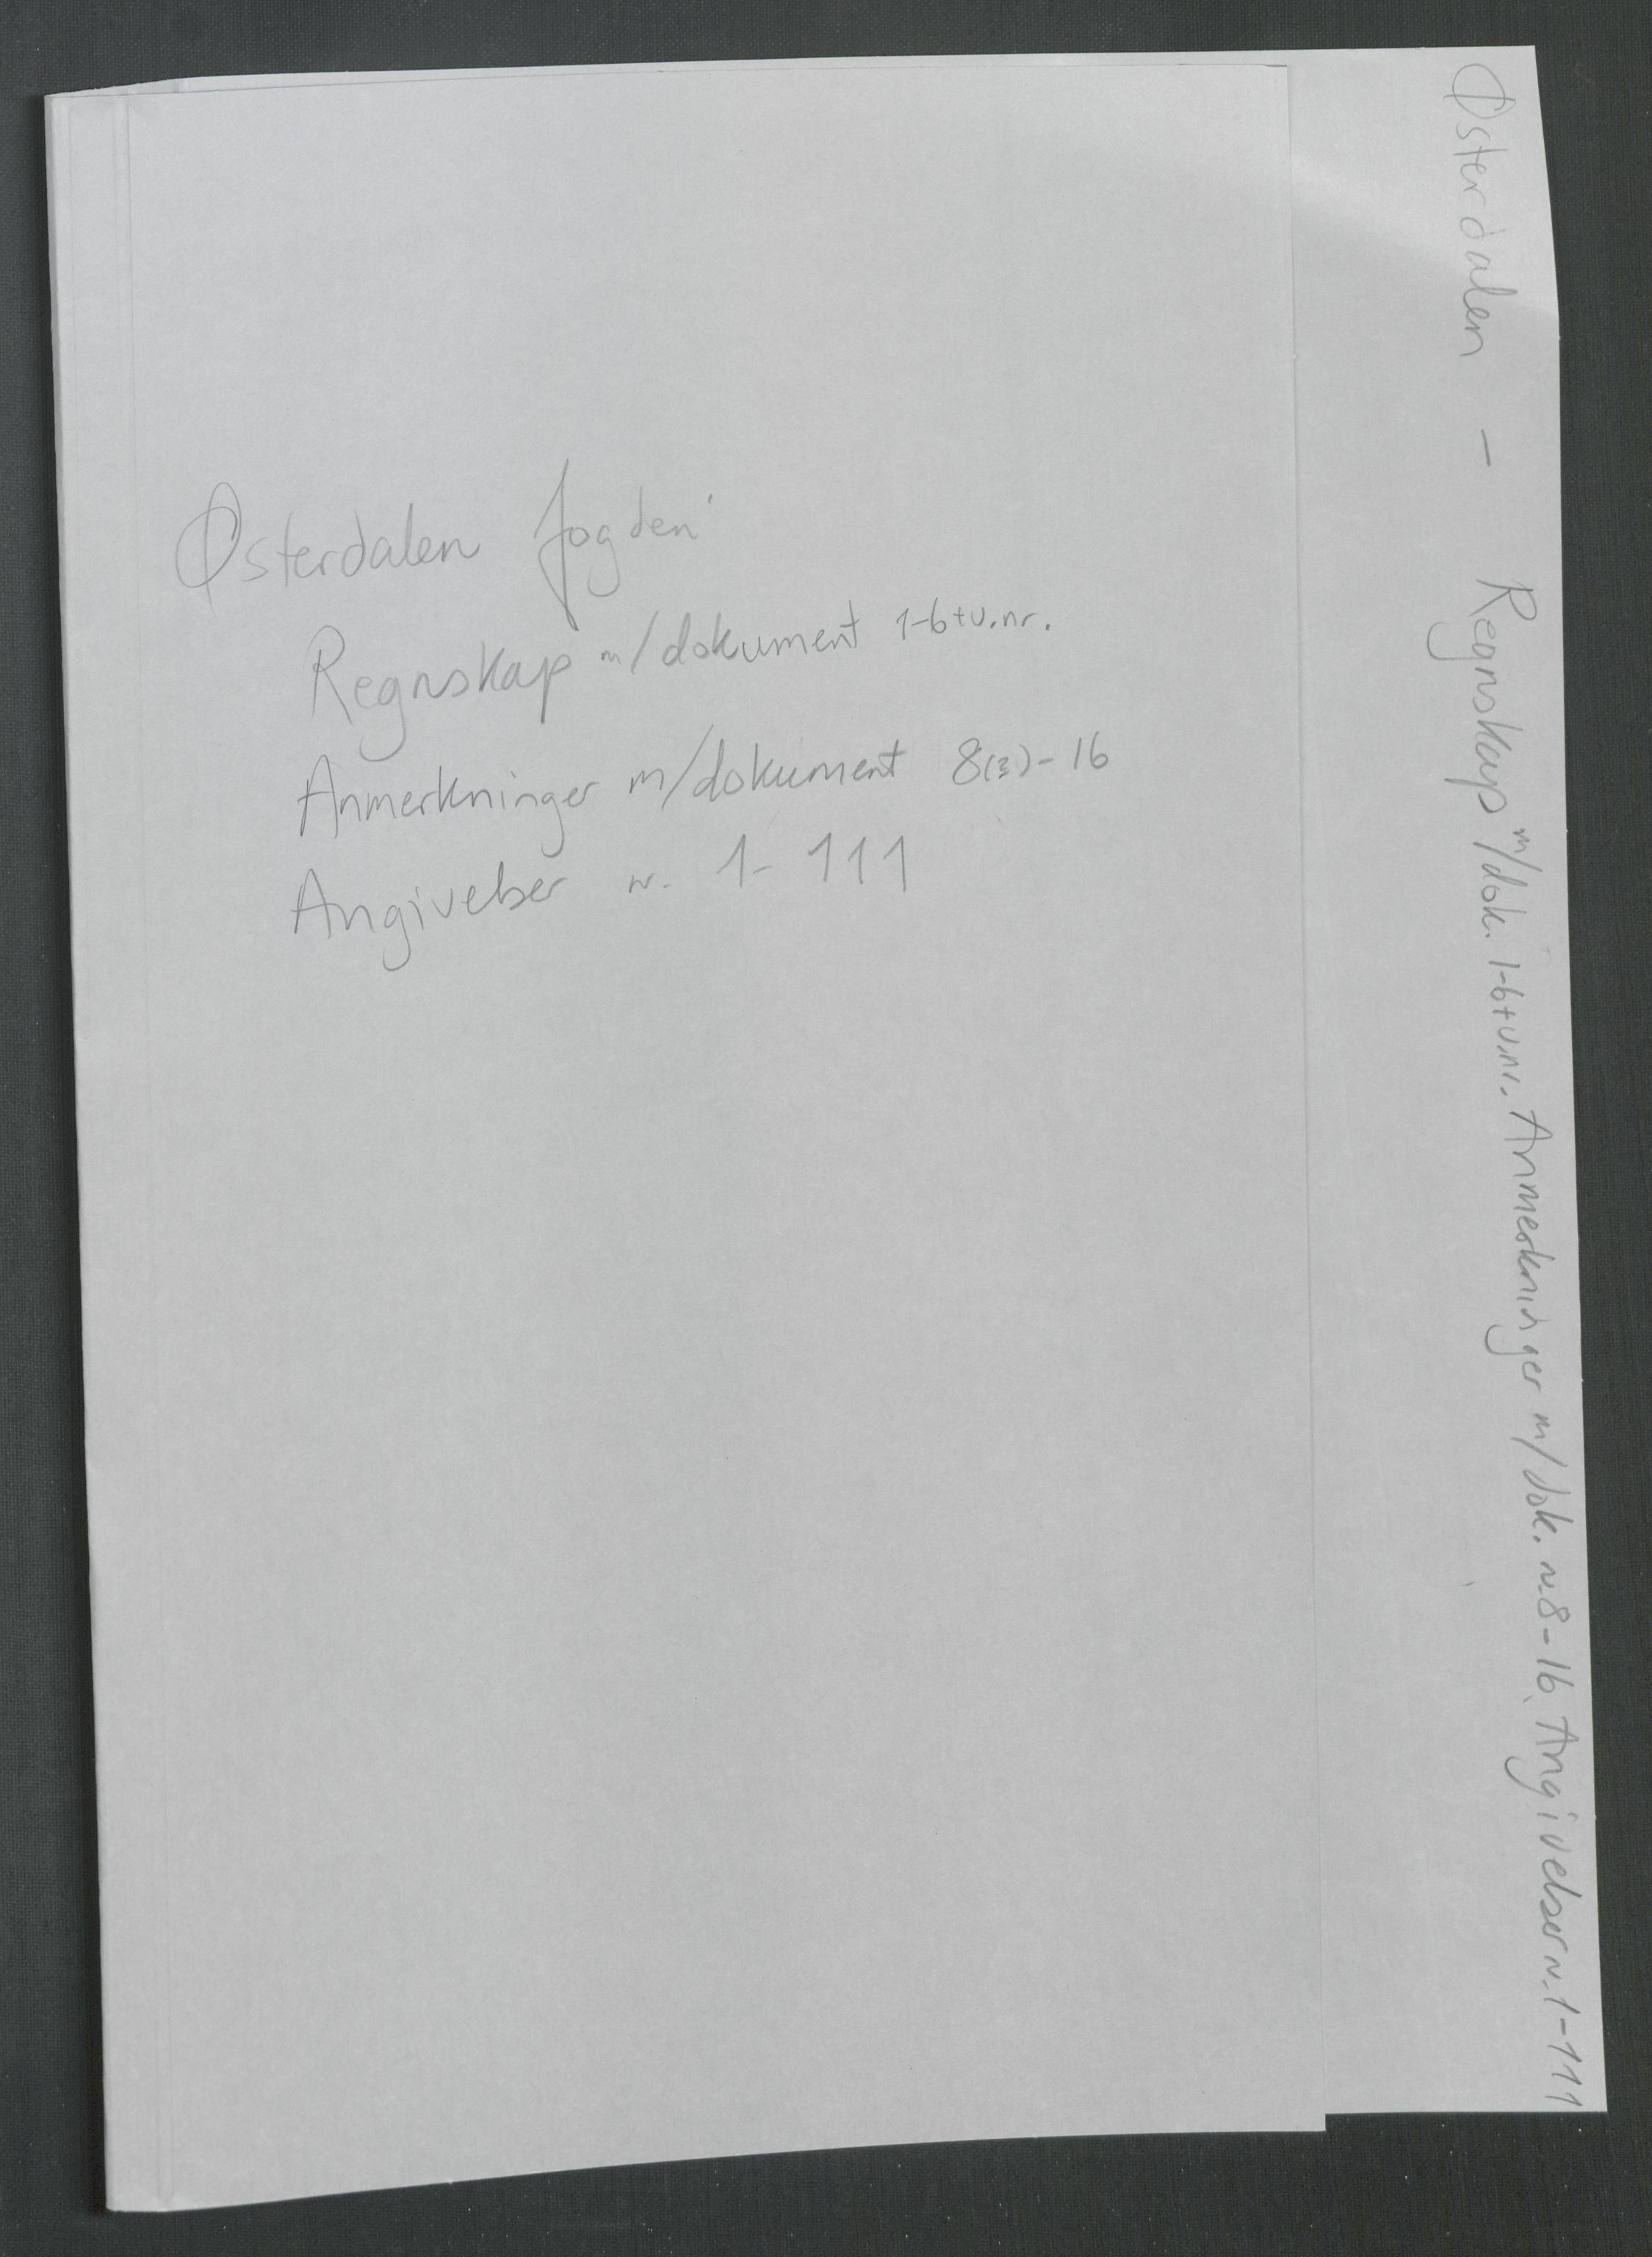 Østerdalen fogden
Regnskap m/dokument 1-6+u.nr.
Anmerkninger m/dokument 8(3)-16
Angivelser nr. 1-111
Østerdalen - Regnskap m/dok. 1-6+u.nr. Anmerkninger m/dok. nr.8-16, Angivelser nr. 1-111